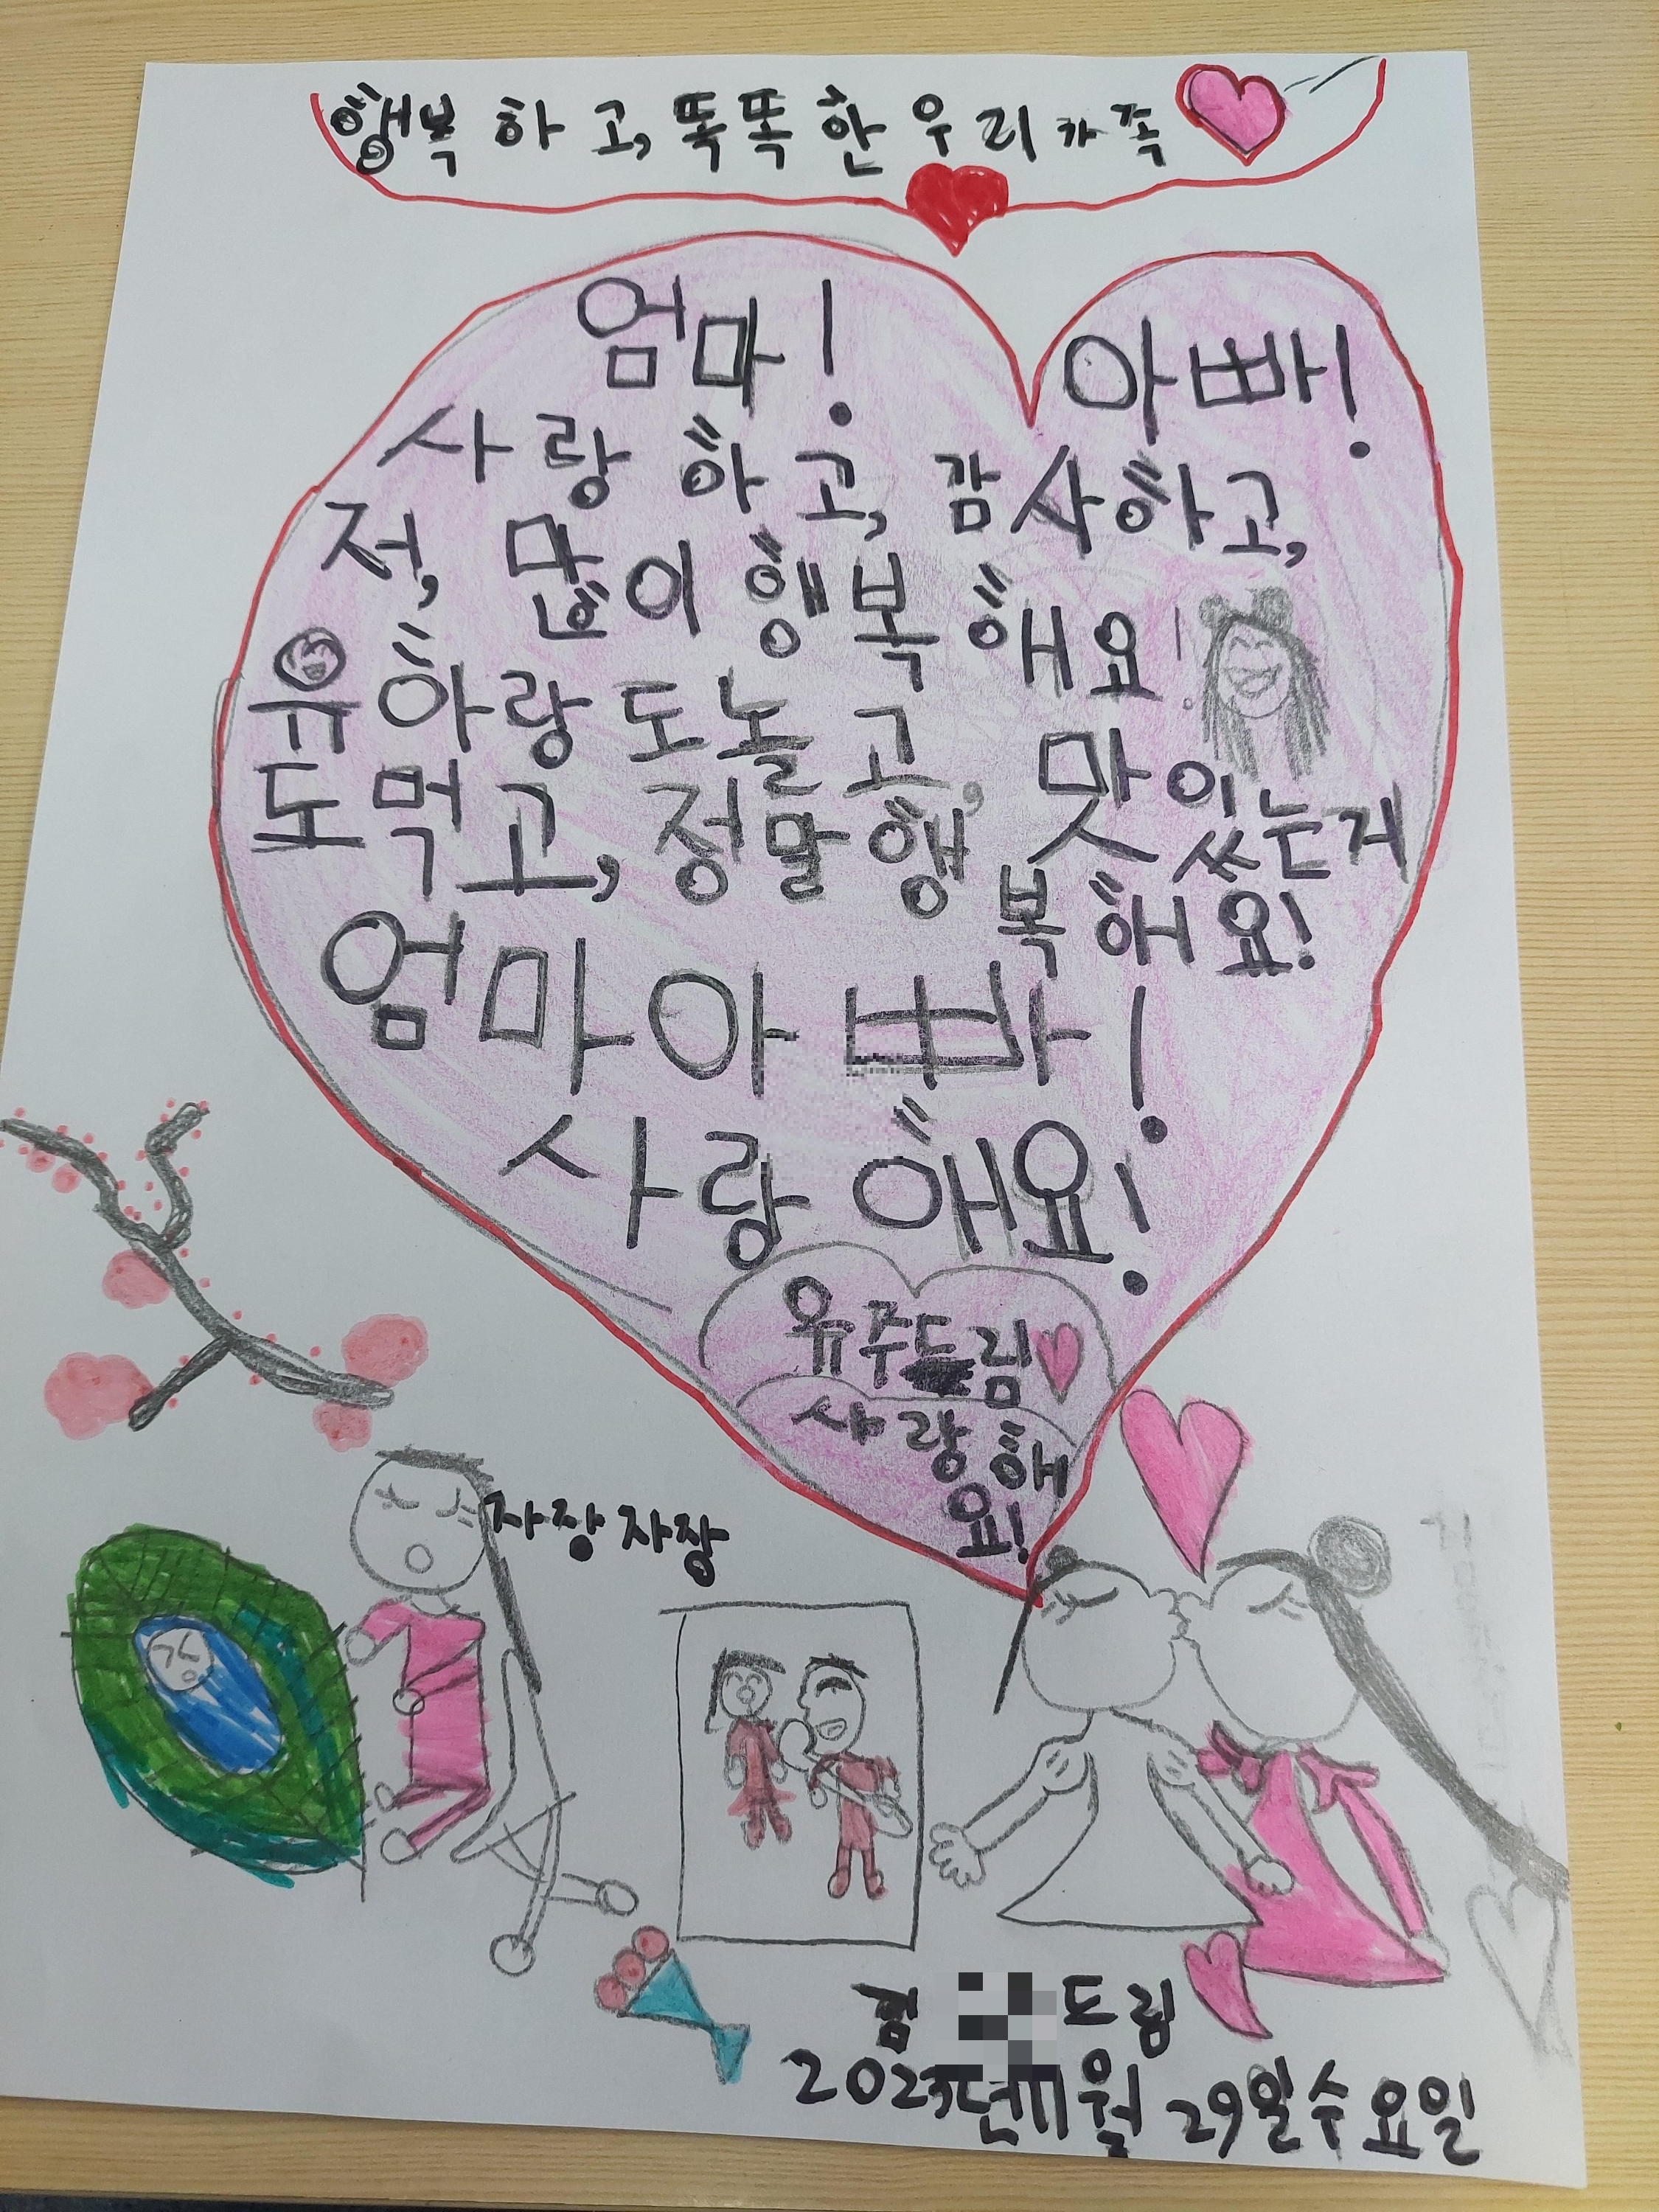 행복하고, 똑똑한 우리 가족
엄마! 아빠!
사랑하고, 감사하고,
저, 많이 행복해요!
유하랑도 놀고, 맛있는거
도 먹고, 정말 행복해요!
엄마아빠!
사랑해요!
유주드림
사랑해
요!
자장자장
김 드림
2023년 11월 29일 수요일